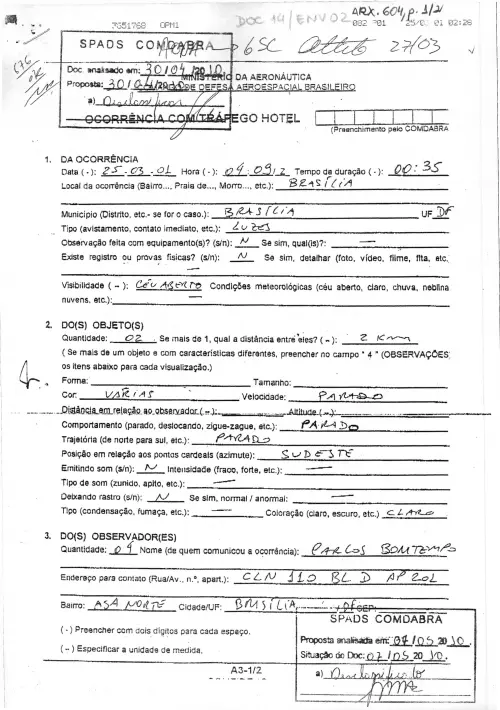 ARX. 604, p. 1/2
7651768 OPM1 DOC 14/ENVO2 002 P01 25/03 01 02:28
SPADS COMDABRA
27/03
Doc analisado em: 30/04/2010
MINISTÉRIO DA AERONÁUTICA
Proposta: 30/04/2010 DE DEFESA AEROESPACIAL BRASILEIRO
a)
OCORRÊNCIA COM TRÁFEGO HOTEL
(Preenchimento pelo COMDABRA
1. DA OCORRÊNCIA
Data (-): 25-03-01 Hora (-): Tempo de duração (-): 00:35
Local da ocorrência (Bairro..., Praia de..., Morro..., etc.): BRASÍLIA
Município (Distrito, etc.- se for o caso.): BRASÍLIA UF DF
Tipo (avistamento, contato imediato, etc.): LUZES
Observação feita com equipamento(s)? (s/n): N Se sim, qual(is)?:
Existe registro ou provas físicas? (s/n): N Se sim, detalhar (foto, vídeo, filme, fita, etc.
Visibilidade ( ~ ): CÉU ABERTO Condições meteorológicas (céu aberto, claro, chuva, neblina
nuvens, etc.):
2. DO(S) OBJETO(S)
Quantidade: 02 . Se mais de 1, qual a distância entre eles? ( ~ ): 2 Km
( Se mais de um objeto e com características diferentes, preencher no campo " 4 " (OBSERVAÇÕES,
os itens abaixo para cada visualização.)
Forma: Tamanho:
Cor: VÁRIAS Velocidade: PARADO
Distância em relação ao observador ( ~ ): Altitude ( ~ ):
Comportamento (parado, deslocando, zigue-zague, etc.): PARADO
Trajetória (de norte para sul, etc.): PARADO
Posição em relação aos pontos cardeais (azimute): SUDESTE
Emitindo som (s/n): N Intensidade (fraco, forte, etc.):
Tipo de som (zunido, apito, etc.):
Deixando rastro (s/n): N Se sim, normal / anormal:
Tipo (condensação, fumaça, etc.): Coloração (claro, escuro, etc.) CLARO
3. DO(S) OBSERVADOR(ES)
Quantidade: Nome (de quem comunicou a ocorrência): CARLOS BOMTEMPO
Endereço para contato (Rua/Av., n.º, apart.): CLN 110 BL D AP 201
Bairro: ASA NORTE Cidade/UF: BRASÍLIA, DF CEP:
( - ) Preencher com dois dígitos para cada espaço.
( ~ ) Especificar a unidade de medida.
SPADS COMDABRA
Proposta analisada em: 07/05 2010.
Situação do Doc: 07/05 2010.
a)
A3-1/2